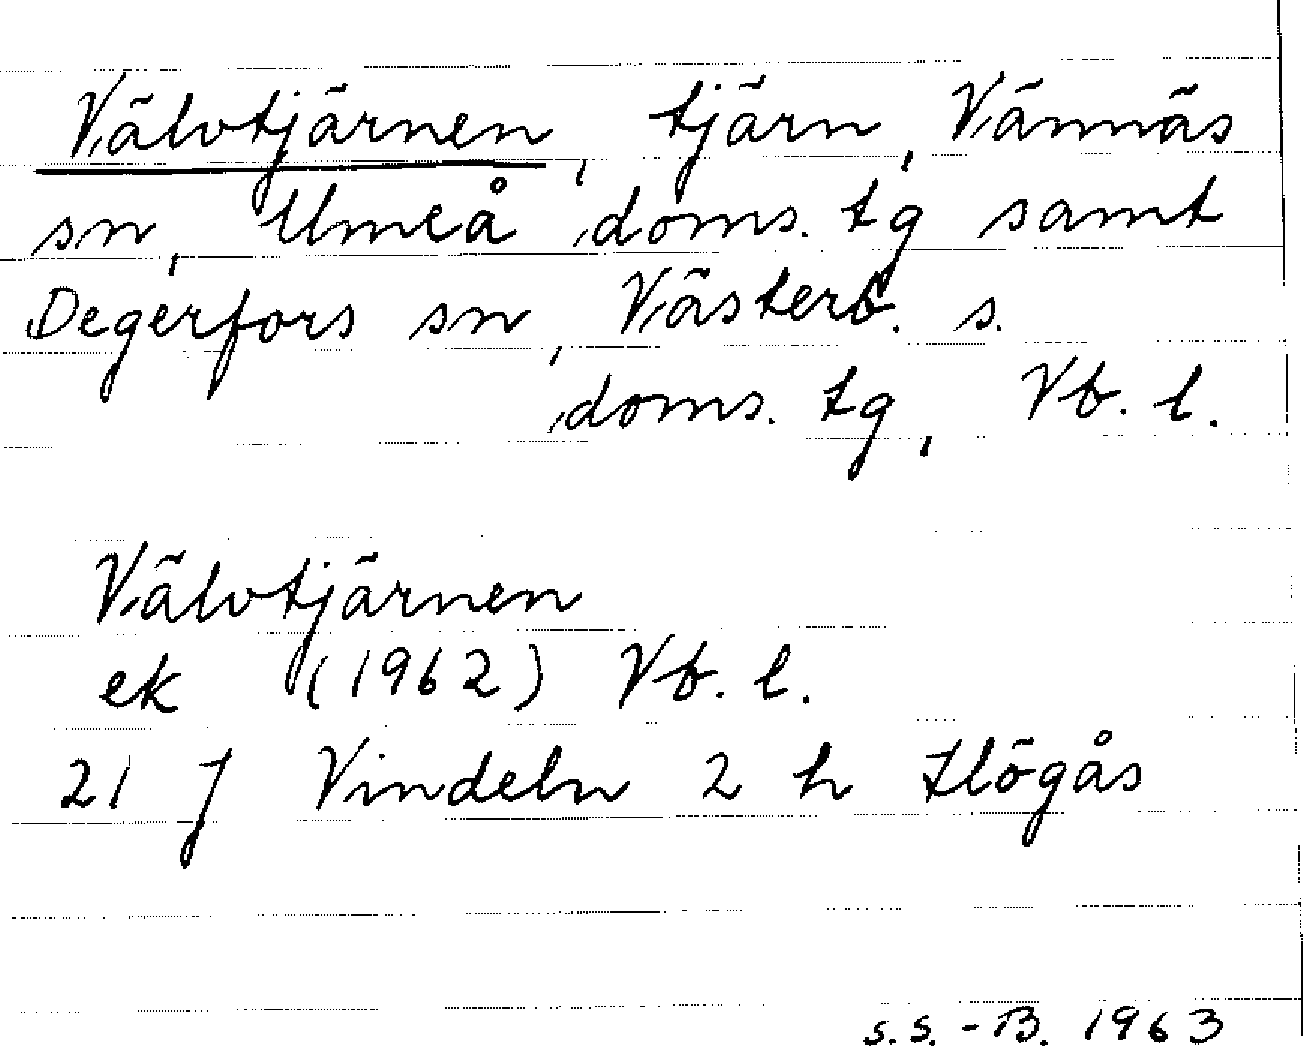 Välvtjärnen, tjärn, Vännäs
sn, Umeå doms. tg samt
Degerfors sn, Västerb. s.
doms. tg, Vb. l.
Välvtjärnen
ek (1962) Vb. l.
21 J Vindeln 2 h Högås
S.S.-B. 1963